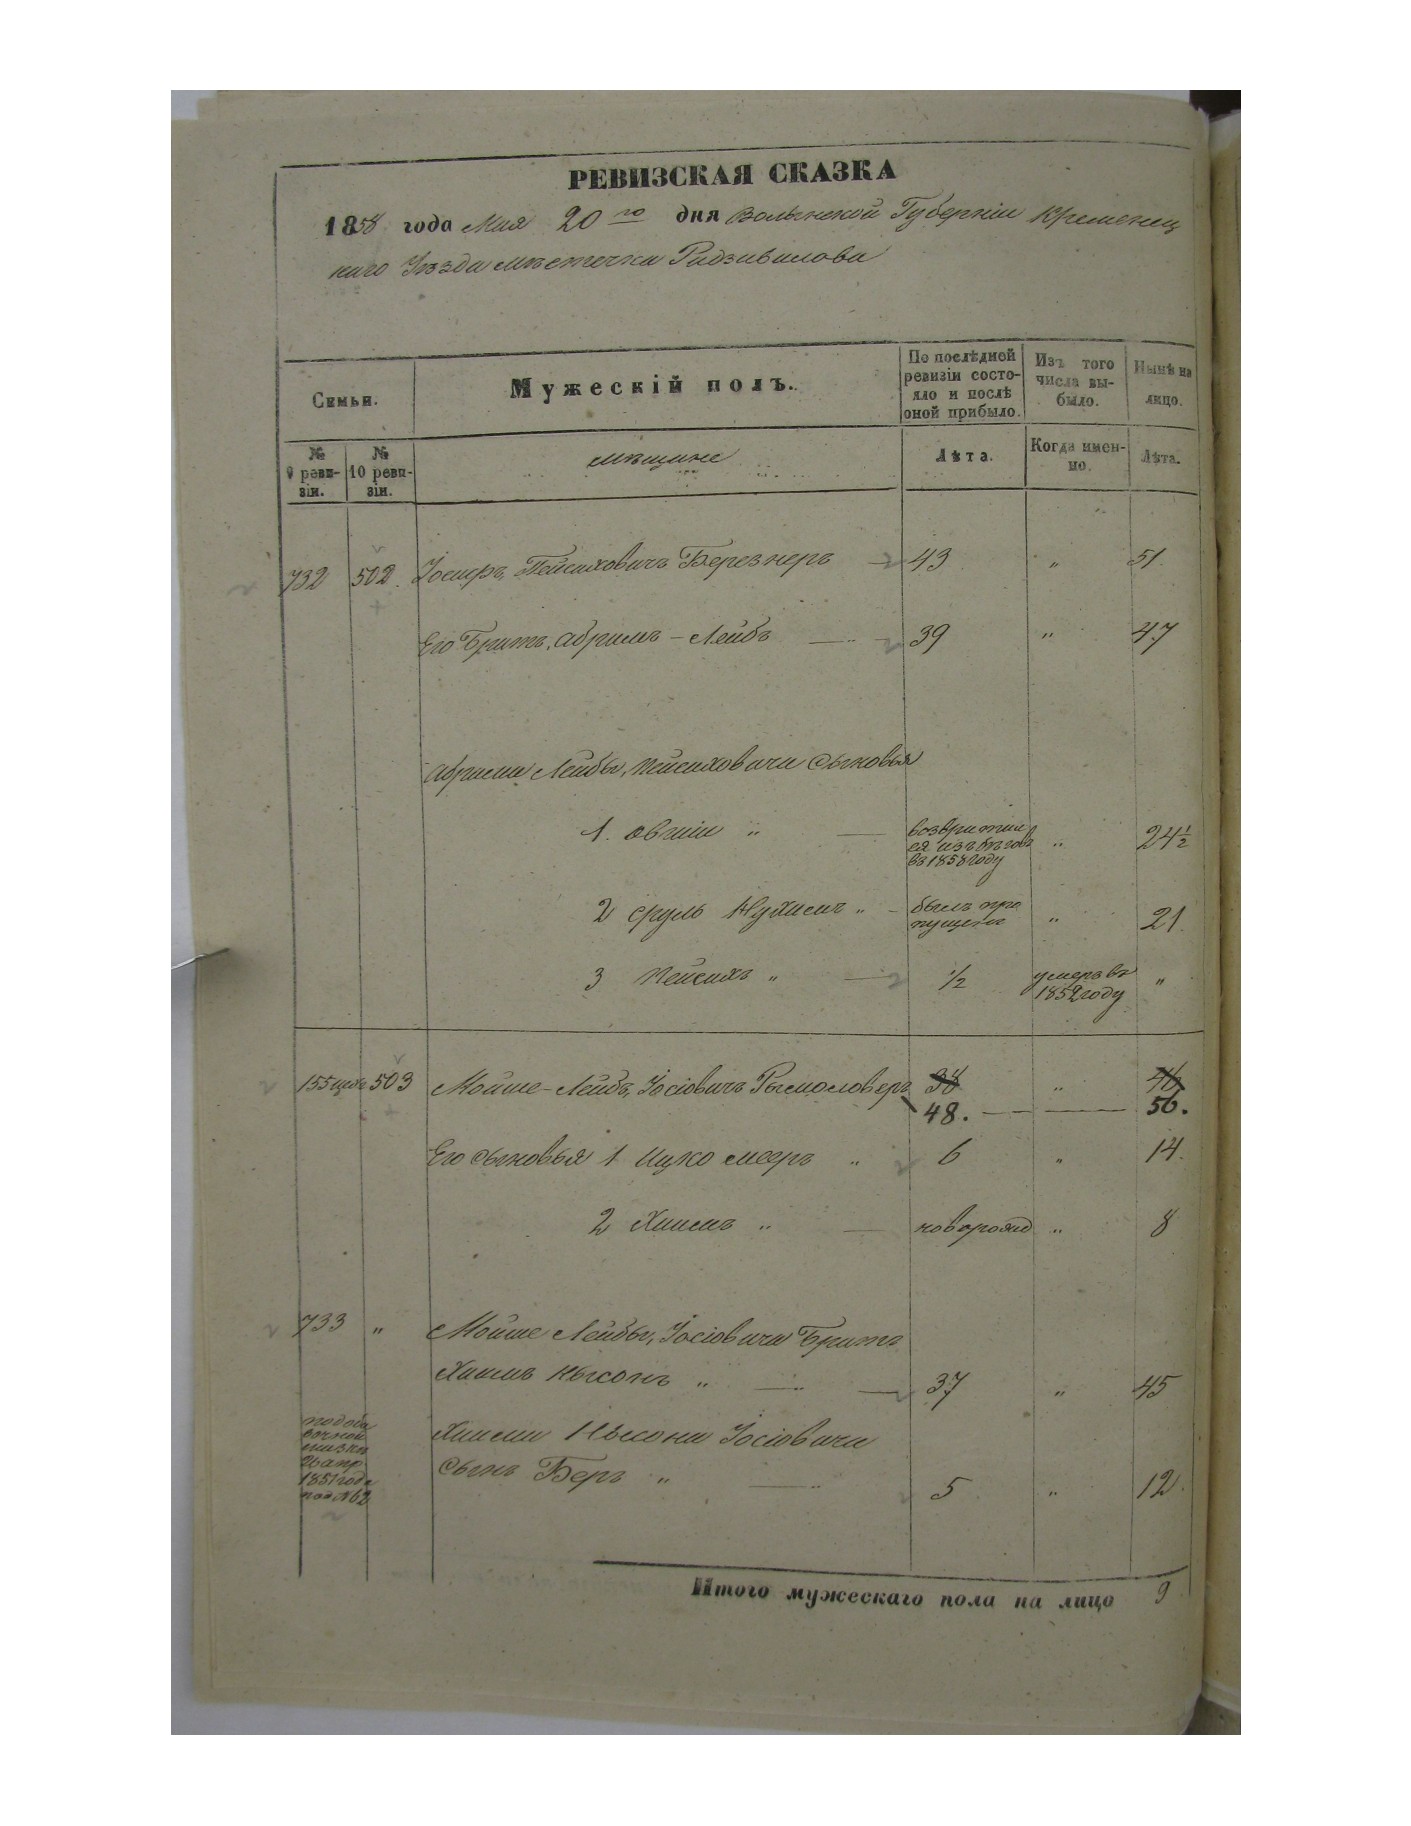 РЕВИЗСКАЯ СКАЗКА
1858 года Мая 20го дня Волынской Губерніи Кременец
каго Уѣзда мѣстечка Радзивилова
Семьи.
Мужескій полъ.
По послѣдней
ревизіи состо-
яло и послѣ
оной прибыло.
Изъ того
числа вы-
было.
Нынѣ на
лицо.
№
9 реви-
зіи.
№
10 реви-
зіи.
мѣщане
Лѣта.
Когда имен-
но.
Лѣта.
732 502. Іосифъ Пейсиховичъ Березнеръ — 43 " 51.
Его Братъ, Абрамъ-Лейбъ — 39 " 47
Абрама Лейбы, Пейсиховича Сыновья
1. Овшія " — возвратил
ся изъ бѣговъ
въ 1858 году " 24½
2 Сруль Нухимъ " - былъ про
пущенъ " 21.
3 Пейсихъ " — ½ умеръ въ
1852 году "
155 503 Мойше-Лейбъ, Іосіовичъ Рысмоловеръ 38 " 46
48. — — 56.
Его Сыновья 1 Ицко Мееръ " 6 " 14.
2 Хаимъ " — новорожд " 8
733 " Мойше Лейбы, Іосіовича Братъ
Хаимъ Нысонъ " — 37 " 45
по доба
вочной
сказки
26 апр
1851 года
под №62
Хаима Нысона Іосіовича
Сынъ Беръ " — 5 " 12.
Итого мужескаго пола на лицо 9